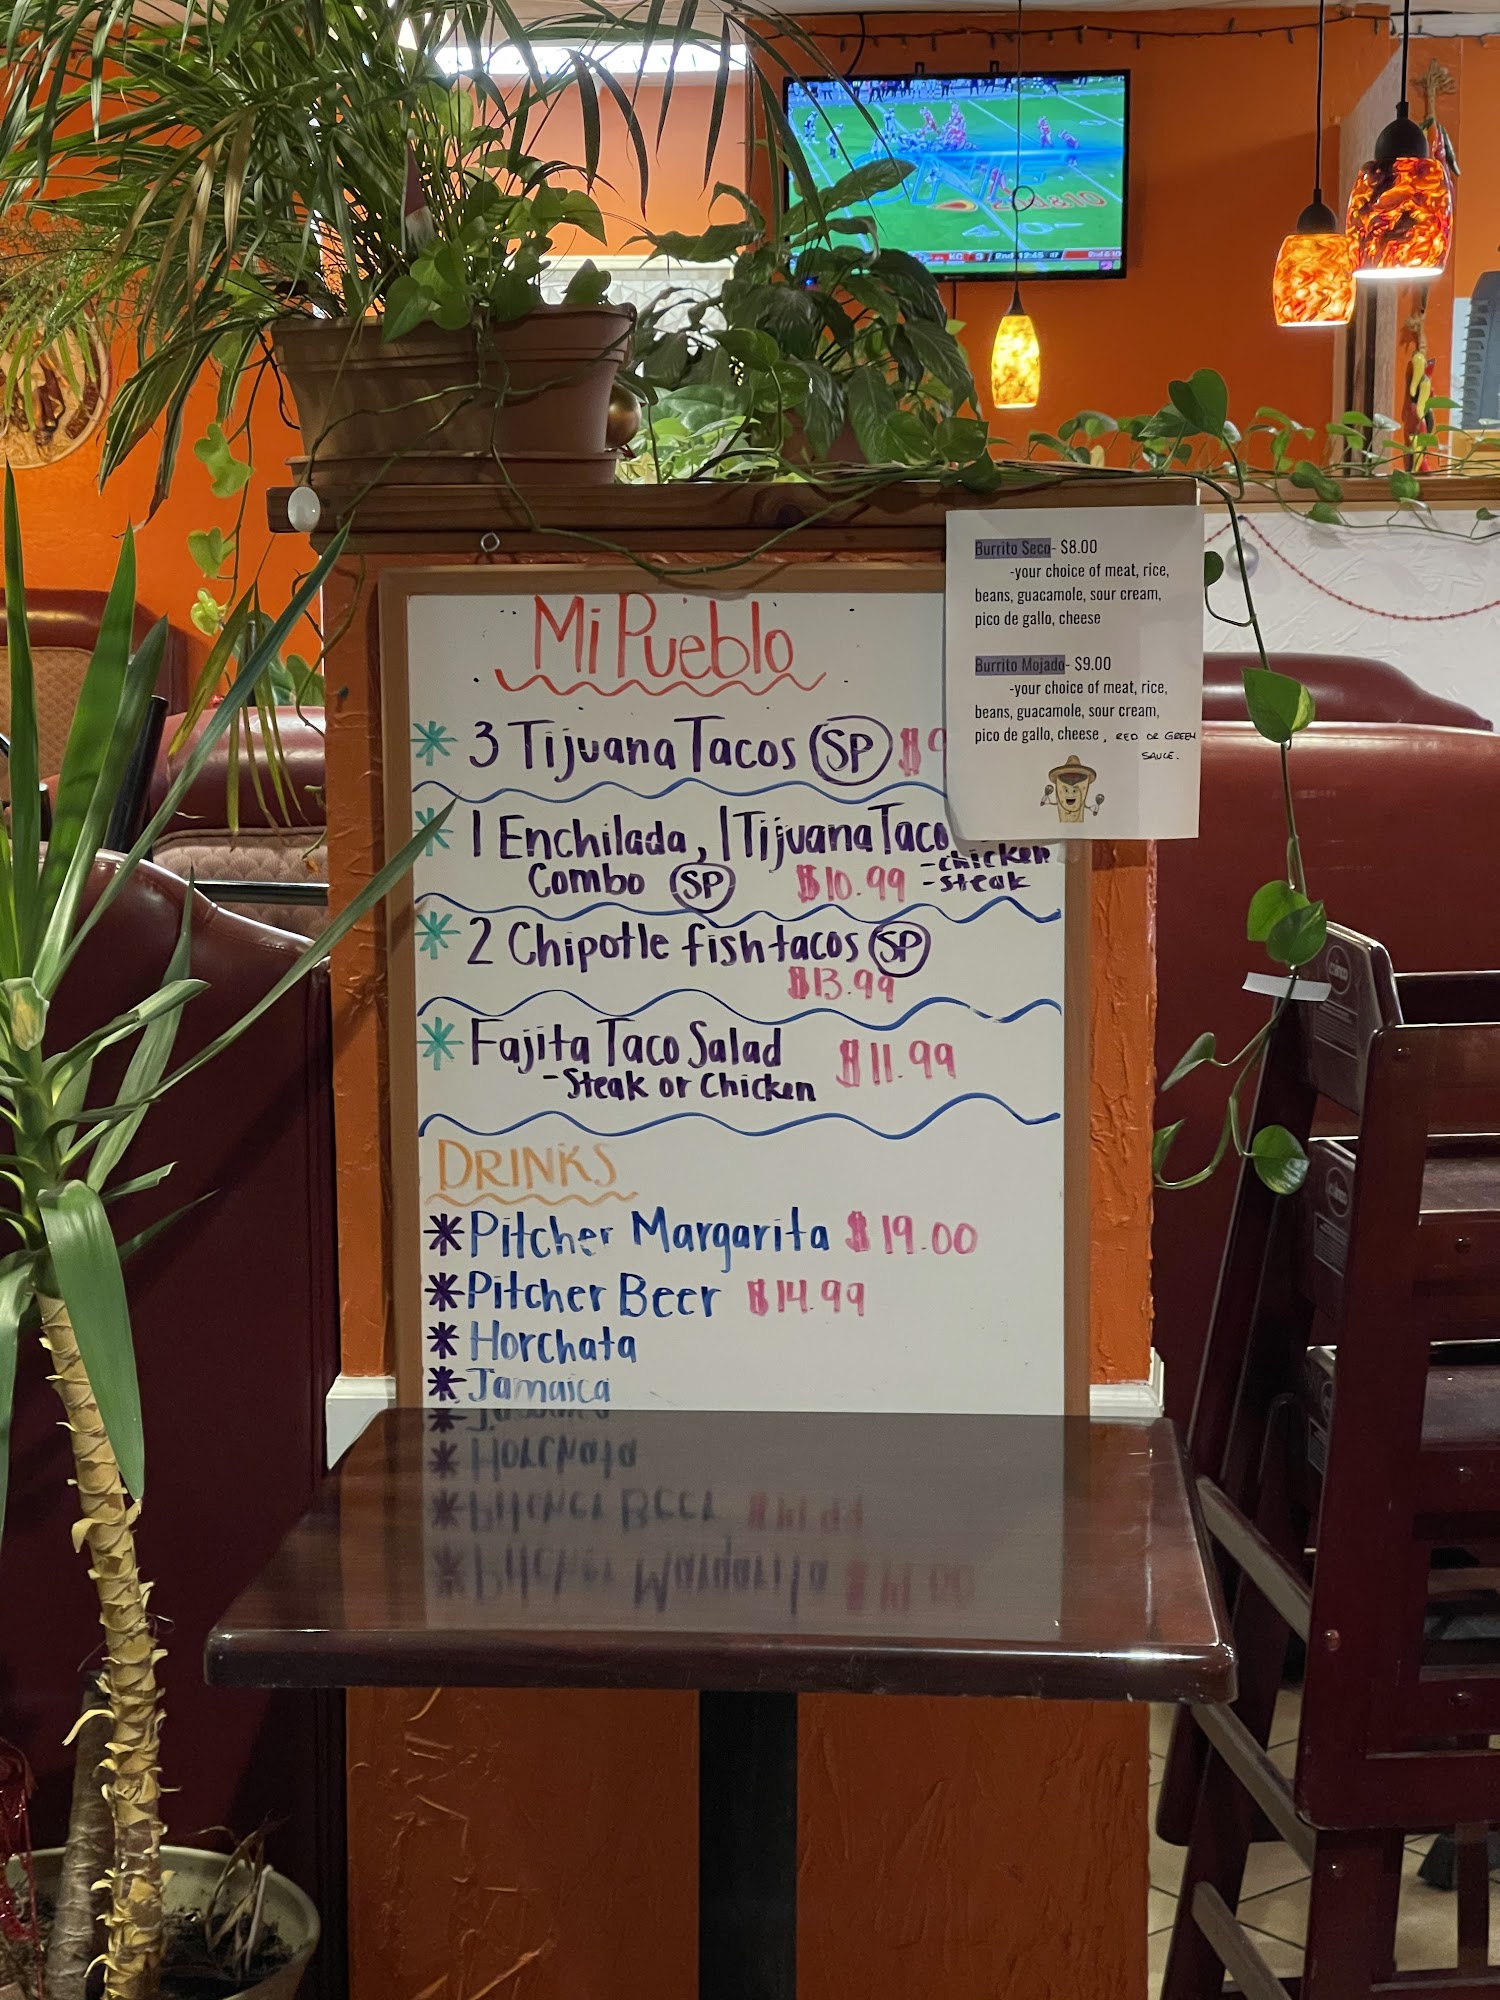 Mi Pueblo
3 Tijuana Tacos SP $9
1 Enchilada, 1 Tijuana Taco
-chicken
Combo SP $10.99 -steak
2 Chipotle fish tacos SP
$13.99
Fajita Taco Salad $11.99
-Steak or Chicken
DRINKS
Pitcher Margarita $19.00
Pitcher Beer $14.99
Horchata
Jamaica
Burrito Seco- $8.00
-your choice of meat, rice,
beans, guacamole, sour cream,
pico de gallo, cheese
Burrito Mojado- $9.00
-your choice of meat, rice,
beans, guacamole, sour cream,
pico de gallo, cheese, RED OR GREEN
SAUCE.
KC 3 2nd 12:45